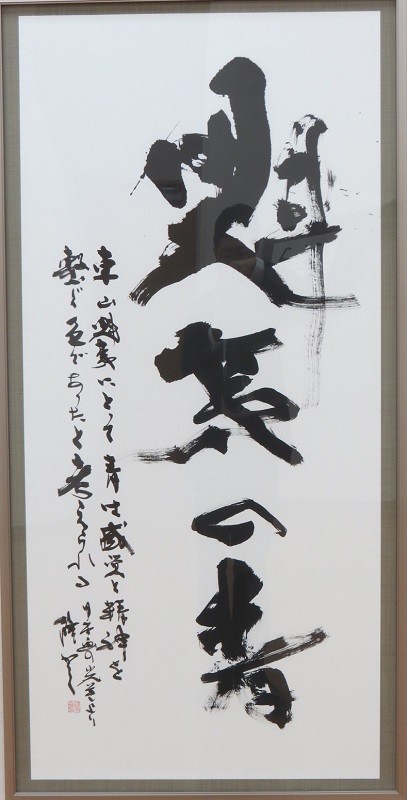 魁夷の青
東山魁夷にとって青は感覚と精神を
繋ぐ色であったと考えられる
より